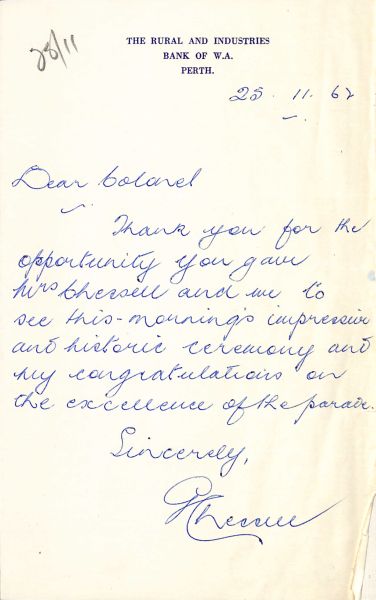 28/11
THE RURAL AND INDUSTRIES
BANK OF W.A.
PERTH.
25. 11. 62
Dear Colonel
Thank you for the
opportunity you gave
Mrs Chessell and me to
see this morning's impressive
and historic ceremony and
my congratulations on
the excellence of the parade.
Sincerely,